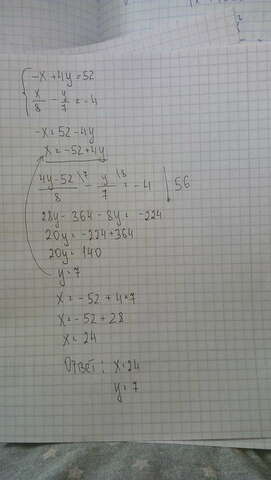 -x+4y=52
x/8 - y/7 = -4
-x=52-4y
x=-52+4y
4y-52\7 /8 - y\8 /7 = -4 | 56
28y-364-8y=-224
20y=-224+364
20y=140
y=7
x=-52+4*7
x=-52+28
x=24
Ответ: x=24
y=7